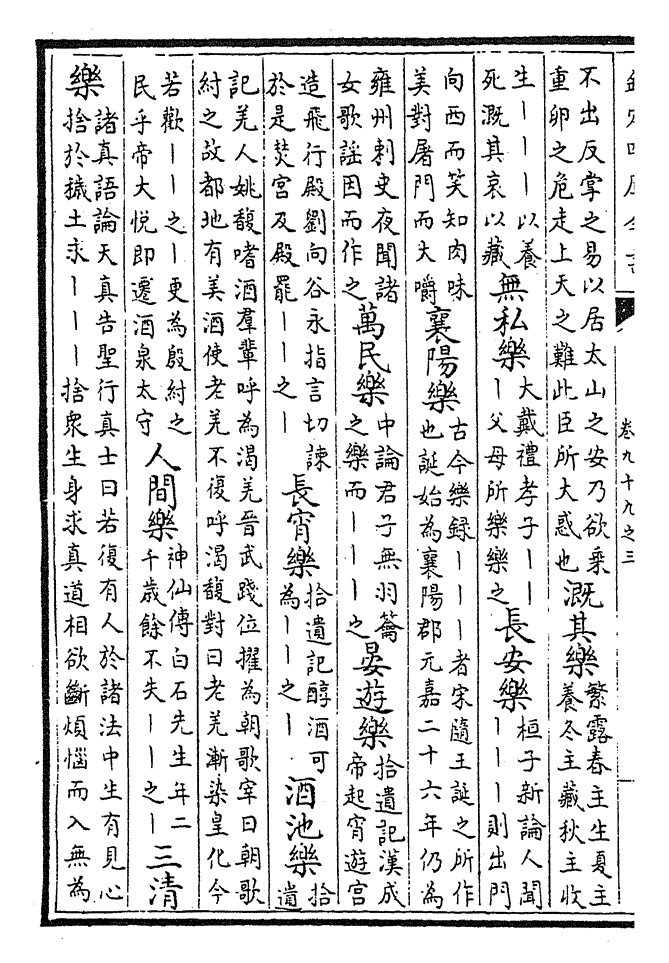 欽定四庫全書
卷九十九之三
不出反掌之易以居太山之安乃欲乘
重卵之危走上天之難此臣所大惑也
溉其樂
繁露春主生夏主
養冬主藏秋主收
生｜｜｜以養
死溉其哀以藏
無私樂
大戴禮孝子｜｜
｜父母所樂樂之
長安樂
桓子新論人聞
｜｜｜則出門
向西而笑知肉味
美對屠門而大嚼
襄陽樂
古今樂録｜｜｜者宋隨王誕之所作
也誕始為襄陽郡元嘉二十六年仍為
雍州刺史夜聞諸
女歌謡因而作之
萬民樂
中論君子無羽籥
之樂而｜｜｜之
晏遊樂
拾遺記漢成
帝起宵遊宮
造飛行殿劉向谷永指言切諫
於是焚宮及殿罷｜｜之｜
長宵樂
拾遺記醇酒可
為｜｜之｜
酒池樂
拾
遺
記羌人姚馥嗜酒羣輩呼為渴羌晉武踐位擢為朝歌宰曰朝歌
紂之故都地有美酒使老羌不復呼渴馥對曰老羌漸染皇化今
若歡｜｜之｜更為殷紂之
民乎帝大悦即遷酒泉太守
人間樂
神仙傳白石先生年二
千歲餘不失｜｜之｜
三清
樂
諸真語論天真告聖行真士曰若復有人於諸法中生有見心
捨於穢土求｜｜｜捨衆生身求真道相欲斷煩惱而入無為